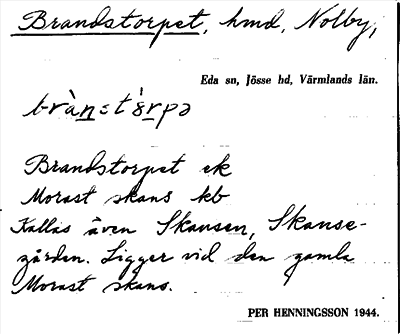 Brandstorpet, hmd, Nolby,
Eda sn, Jösse hd, Värmlands län.
Brandstorpet ek
Morast skans kb
Kallas även Skansen, Skanse-
gården. Ligger vid den gamla
Morast skans.
PER HENNINGSSON 1944.